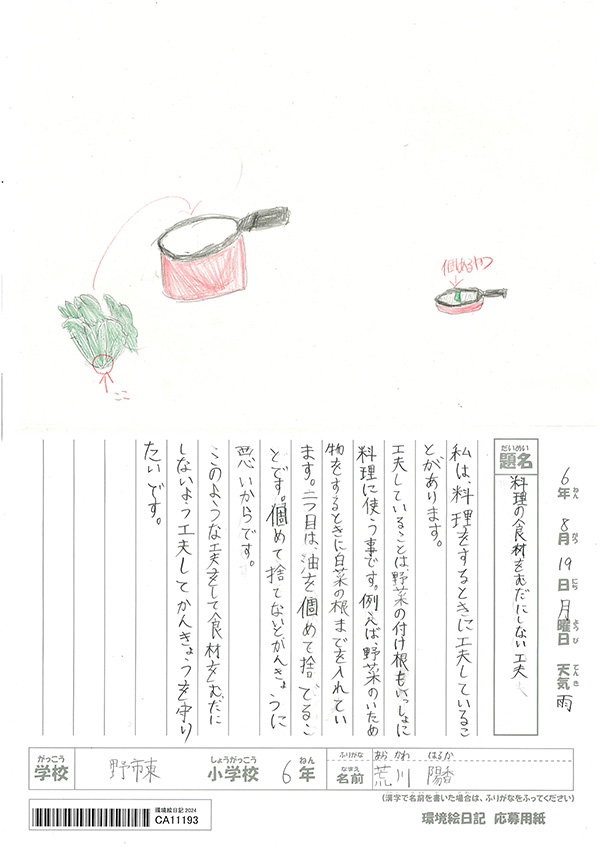 個める
やつ
ここ
6年 8月 19日 月曜日 天気 雨
ねん がつ にち ようび てんき
だいめい
題名
料理の食材をむだにしない工夫
私は、料理をするときに工夫しているこ
とがあります。
工夫していることは、野菜の付け根もいっしょに
料理に使う事です。例えば、野菜のいため
物をするときに白菜の根までを入れてい
ます。二つ目は、油を個めて捨てるこ
とです。個めて捨てないとがんきょうに
悪いからです。
このような工夫をして食材をむだに
しないよう工夫してかんきょうを守り
たいです。
がっこう しょうがっこう ねん
学校 野市東 小学校 6年
ふりがな あら かわ はるか
なまえ
名前 荒川 陽香
(漢字で名前を書いた場合は、ふりがなをふってください)
環境絵日記 2024
CA11193
環境絵日記 応募用紙